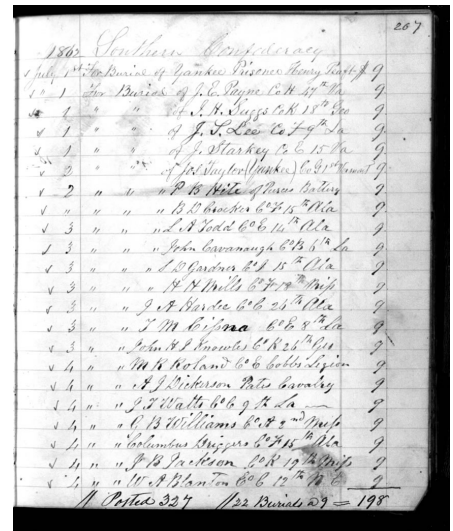 207
1862 Southern Confederacy
✓ July 1st For Burial of Yankee Prisoner Henry $ 9
✓ " 1 For Burial of J. E. Payne Co H 47th Va 9
✓ " " " of J. H. Suggs Co K 18th Geo 9
✓ 1 " " of J. S. Lee Co F 9th La 9
✓ 1 " " of J. Starkey Co E 15 Va 9
✓ 2 " " of Joel Taylor (Yankee) Co G 1st Vermont 9
✓ 2 " " " P B Hite of Battery 9
✓ " " " " B D Crocker Co F 15th Ala 9
✓ 3 " " " L A Todd Co E 14th Ala 9
✓ 3 " " " John Cavanaugh Co B 6th La 9
✓ 3 " " " S D Gardner Co I 15th Ala 9
✓ 3 " " " H H Mills Co F 12th Miss 9
✓ 3 " " " J A Hardee Co C 26th Ala 9
✓ 3 " " " T M Cissna Co E 8th La 9
✓ 3 " " " John H J Knowles Co K 26th Geo 9
✓ 4 " " " M R Roland Co E Cobbs Legion 9
✓ 4 " " " A J Dickerson Pates Cavalry 9
✓ 4 " " " J T Watts Co C 9th La 9
✓ 4 " " " C B Williams Co A 2nd Miss 9
✓ 4 " " " Columbus Driggers Co F 15th Ala 9
✓ 4 " " " J B Jackson Co K 19th Miss 9
✓ 4 " " " W A Blanton Co C 12th N C 9
// Posted 327 // 22 Burials @ 9 = 198